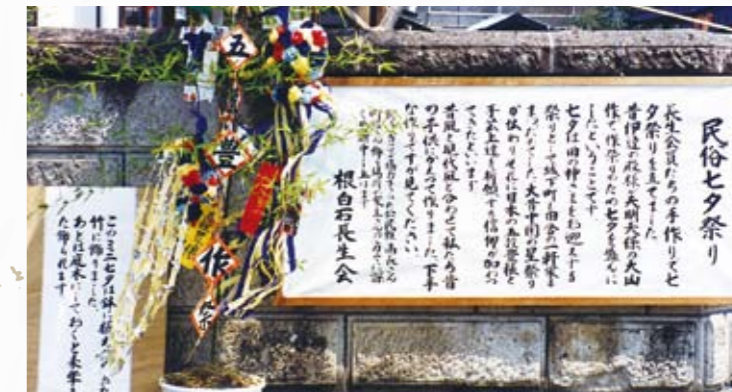 民俗七夕祭り
長生会員たちの手作りで七
夕祭りを立てました
昔伊達の殿様が天明天保の大凶
作で作祭りための七夕を盛んに
したということです
七夕は田の神さまをお迎えする
祭りとして城下町も田舎も一軒家まで
まつったもので、大昔中国の星祭り
が伝わりそれに日本の五穀豊穣と
手芸上達を祈願する信仰が加わっ
てきたといいます
昔風と現代風と合わせて私たち昔
の子供にかえって作りました、下手
な作りですが見てください
根白石長生会
五
豊
作
祭
このミニ七夕は鉢に植え
竹に飾りました
あとは庭木にしておくと来年も
た飾られます